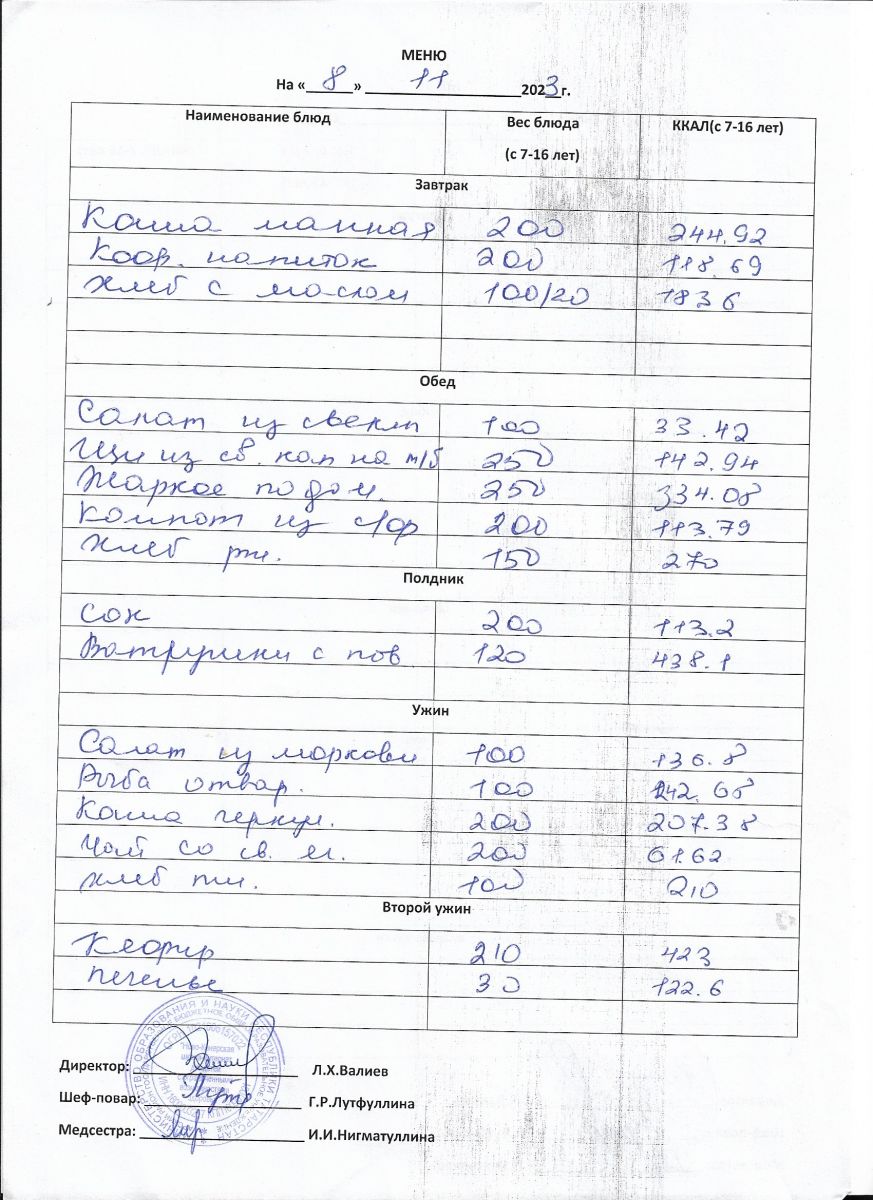 МЕНЮ
На « 8 » 11 2023 г.
Наименование блюд Вес блюда (с 7-16 лет) ККАЛ(с 7-16 лет)
Завтрак
Каша манная 200 244.92
Коф. напиток 200 118.69
Хлеб с маслом 100/20 183 6
Обед
Салат из свеклы 100 33.42
Щи из св. кап на м/б 250 142.94
Жаркое по дом. 250 334.08
Компот из с/фр 200 113.79
Хлеб рж. 150 270
Полдник
Сок 200 113.2
Ватрушки с пов 120 438.1
Ужин
Салат из моркови 100 136.8
Рыба отвар. 100 142.68
Каша геркул. 200 207.38
Чай со св. м. 200 61.62
Хлеб пш. 100 210
Второй ужин
Кефир 210 423
печенье 30 122.6
Директор: Л.Х.Валиев
Шеф-повар: Г.Р.Лутфуллина
Медсестра: И.И.Нигматуллина